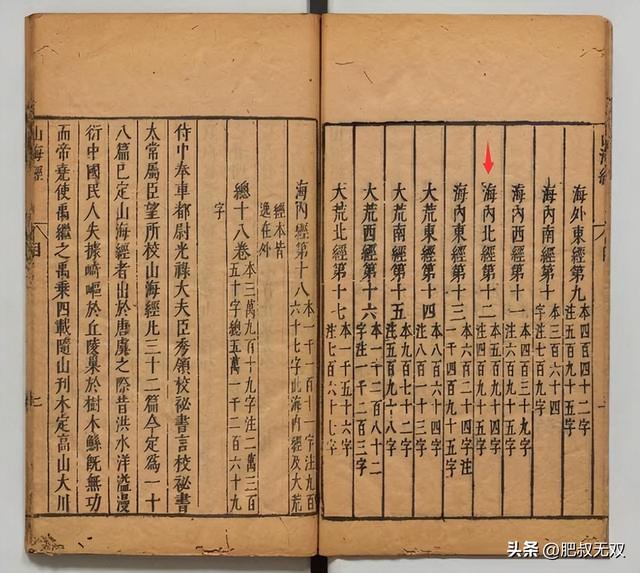 海外東經第九 本四百四十二字 注五百九十五字
海內南經第十 本三百六十四 字注七百九字
海內西經第十一 本四百三十九字 注六百九十五字
海內北經第十二 本五百九十四字 注四百九十五字
海內東經第十三 本六百二十四字注 一千四百九十五字
大荒東經第十四 本八百六十四字 注八百一十三字
大荒南經第十五 本九百七十二字 注五百九十八字
大荒西經第十六 本一千二百八十二 字注一千二百三字
大荒北經第十七 本一千五十六字 注七百六十七字
海內經第十八 本一千一百一十字注九百 六十七字此海內經及大荒
經本皆 逸在外
總十八卷 本三萬九百一十九字注二萬三百 五十字總五萬一千二百六十九
字
侍中奉車都尉光祿大夫臣秀領校祕書言校祕書
太常屬臣望所校山海經凡三十二篇今定爲一十
八篇已定山海經者出於唐虞之際昔洪水洋溢漫
衍中國民人失據崎嶇於丘陵巢於樹木鯀既無功
而帝堯使禹繼之禹乘四載隨山刊木定高山大川
山海經
頭条 @肥叔无双